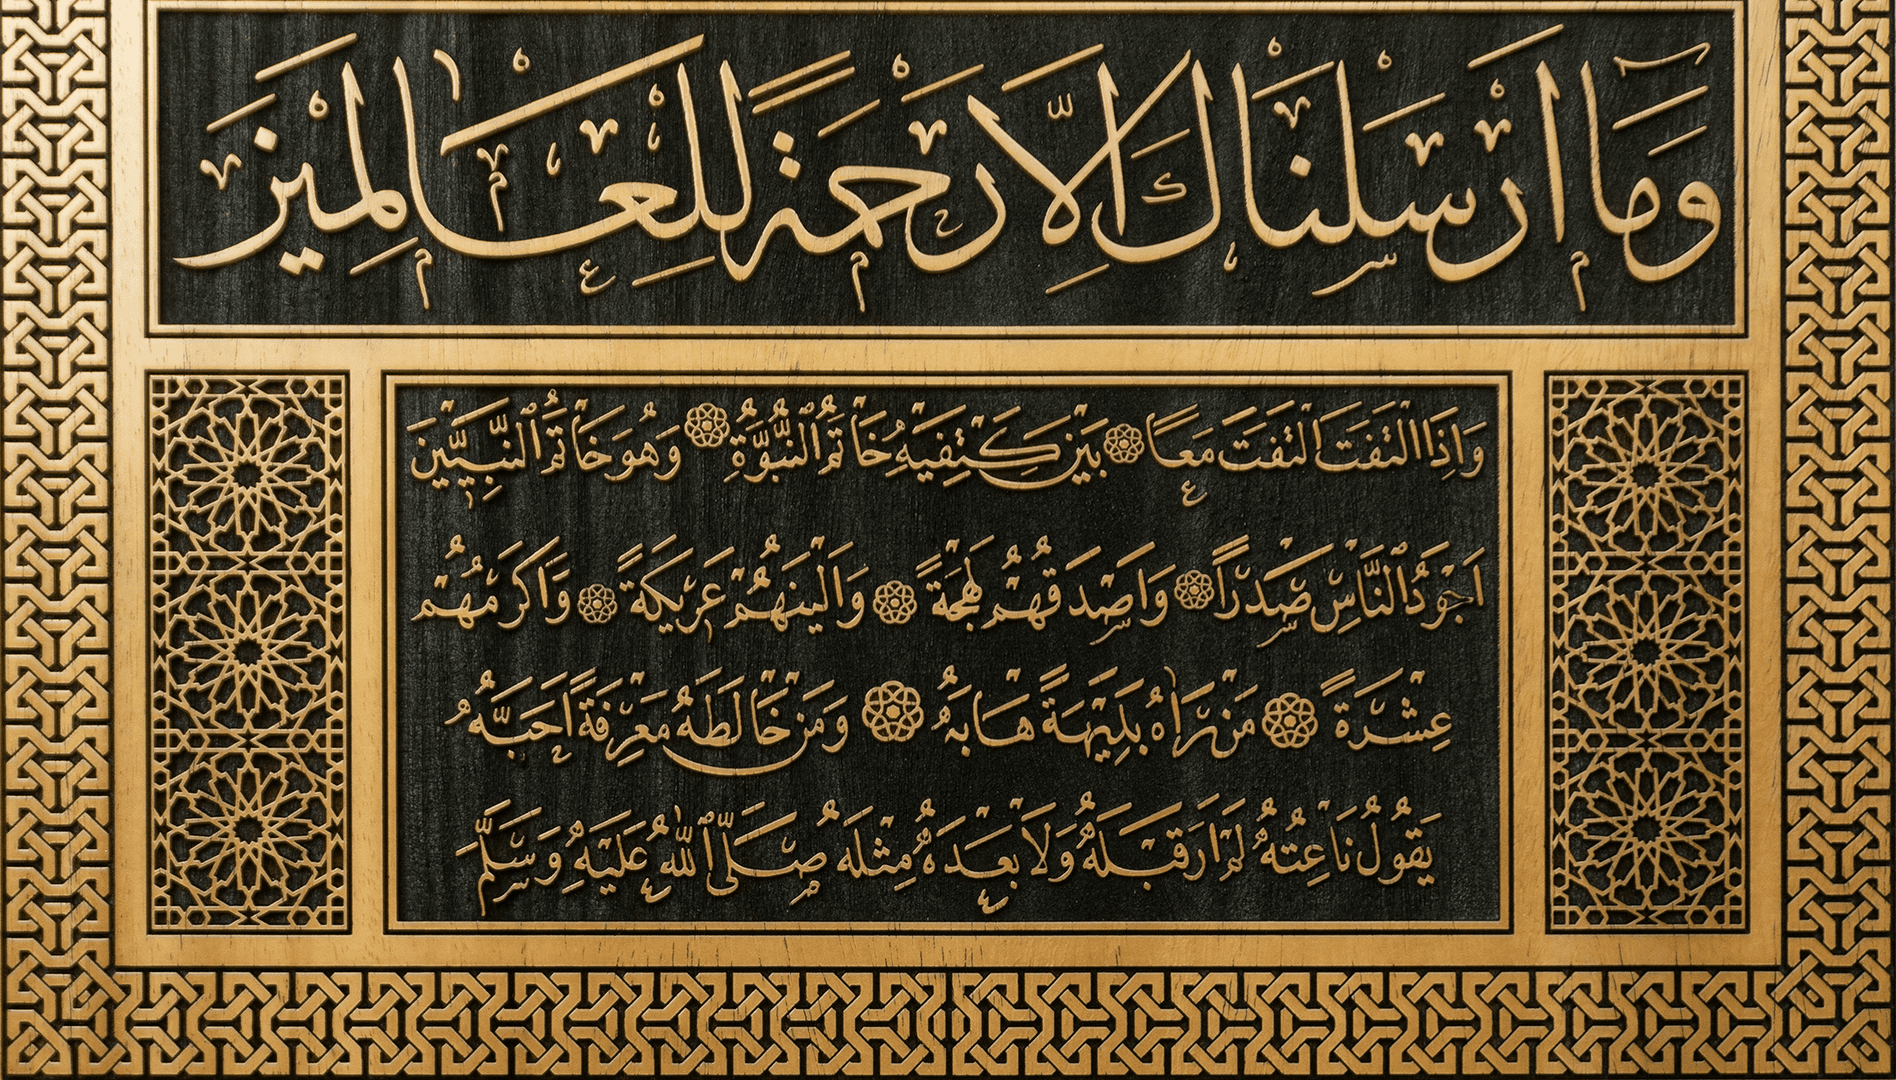 وَمَا أَرْسَلْنَاكَ إِلَّا رَحْمَةً لِلْعَالَمِينَ
وَإِذَا الْتَفَتَ الْتَفَتَ مَعًا بَيْنَ كَتِفَيْهِ خَاتَمُ النُّبُوَّةِ وَهُوَ خَاتَمُ النَّبِيِّينَ
أَجْوَدُ النَّاسِ صَدْرًا وَأَصْدَقُهُمْ لَهْجَةً وَأَلْيَنُهُمْ عَرِيكَةً وَأَكْرَمُهُمْ
عِشْرَةً مَنْ رَآهُ بَدِيهَةً هَابَهُ وَمَنْ خَالَطَهُ مَعْرِفَةً أَحَبَّهُ
يَقُولُ نَاعِتُهُ لَمْ أَرَ قَبْلَهُ وَلَا بَعْدَهُ مِثْلَهُ صَلَّى اللَّهُ عَلَيْهِ وَسَلَّمَ